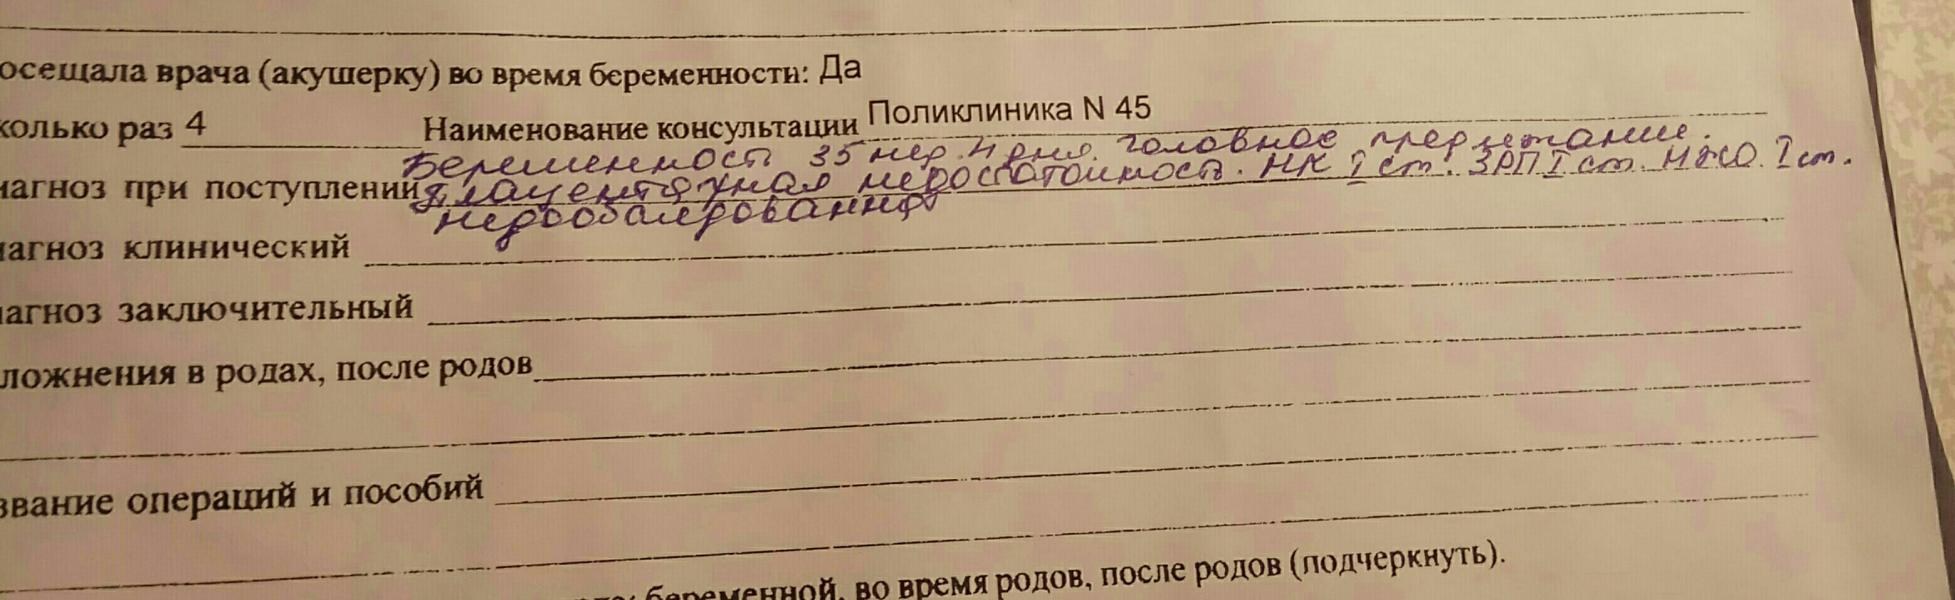 осещала врача (акушерку) во время беременности: Да
колько раз 4 Наименование консультации Поликлиника N 45
Беременность 35 нед. 4 дня. головное предлежание.
иагноз при поступлении Плацентарная недостаточность. НК I ст. ЗРП I ст. I ст.
недообследованная
иагноз клинический
иагноз заключительный
ложнения в родах, после родов
звание операций и пособий
беременной, во время родов, после родов (подчеркнуть).